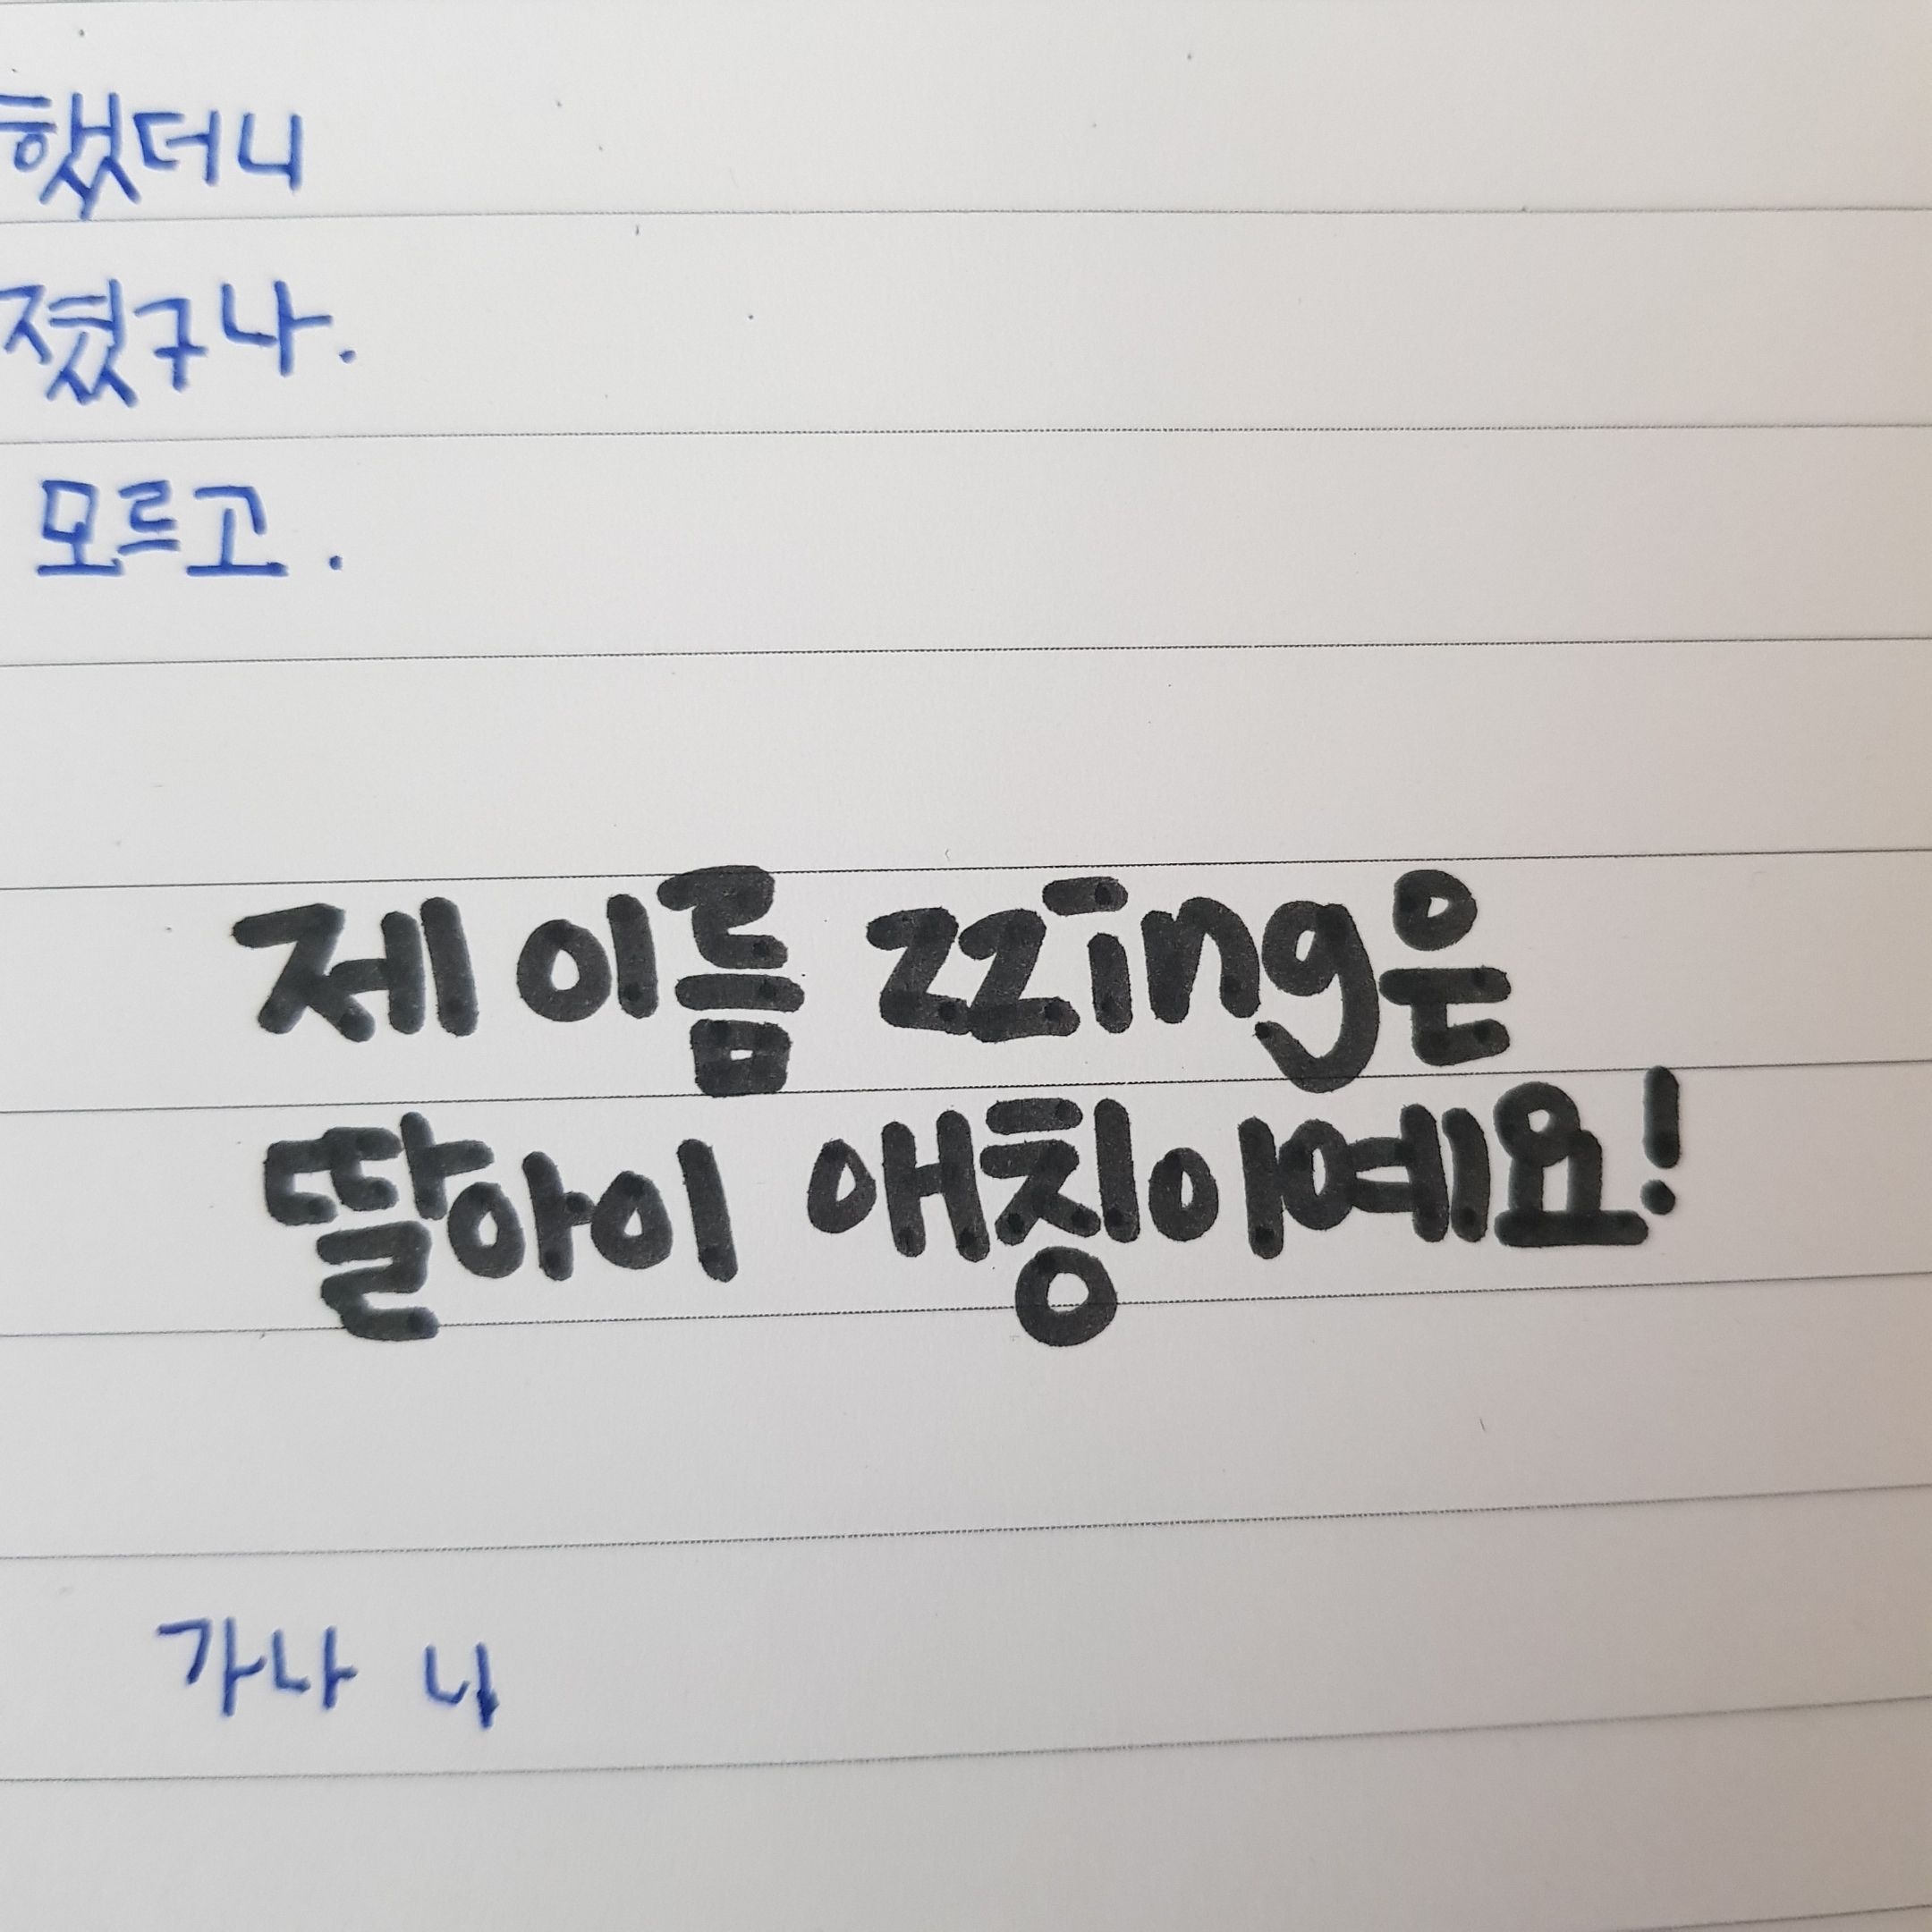 했더니
졌구나.
모르고.
제 이름 zzing은
딸아이 애칭이예요!
가나 니